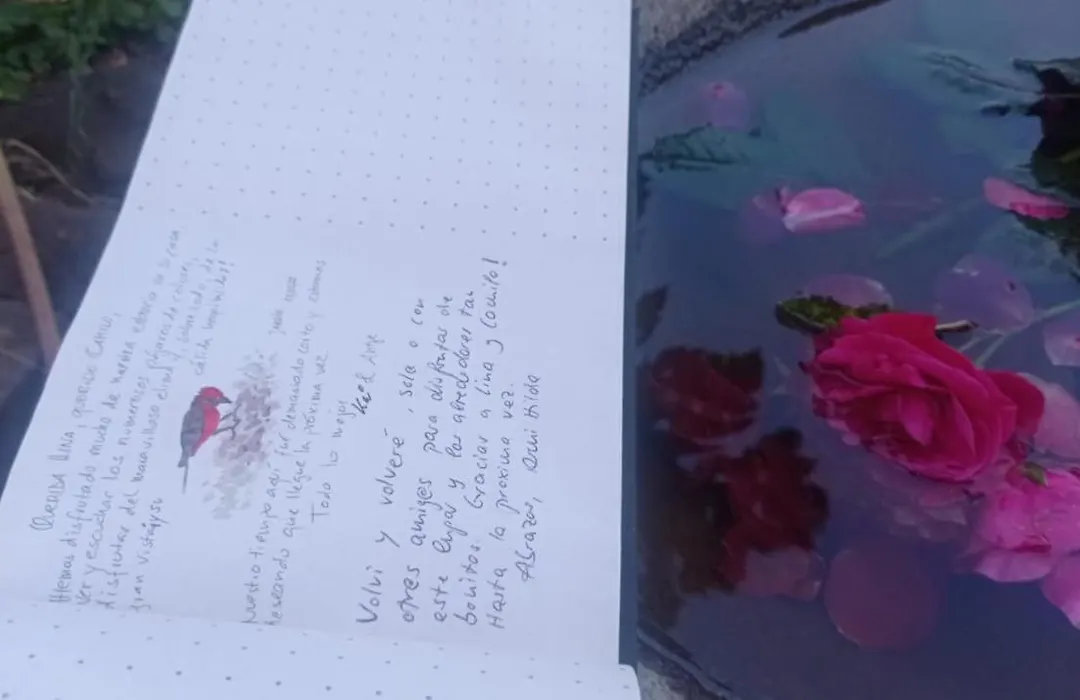 QUERIDA LINA, QUERIDO CAMILO,
Hemos disfrutado mucho de
ver y escuchar los numerosos pájaros de colores,
disfrutar del maravilloso
gran vista y su cálida
nuestro tiempo aquí fue demasiado corto y estamos
deseando que llegue la próxima vez
Todo lo mejor
Volví y volveré, sola o con
otros amigos para disfrutar de
este lugar y los alrededores tan
bonitos. Gracias a Lina y Camilo!
Hasta la próxima vez.
Abrazos,